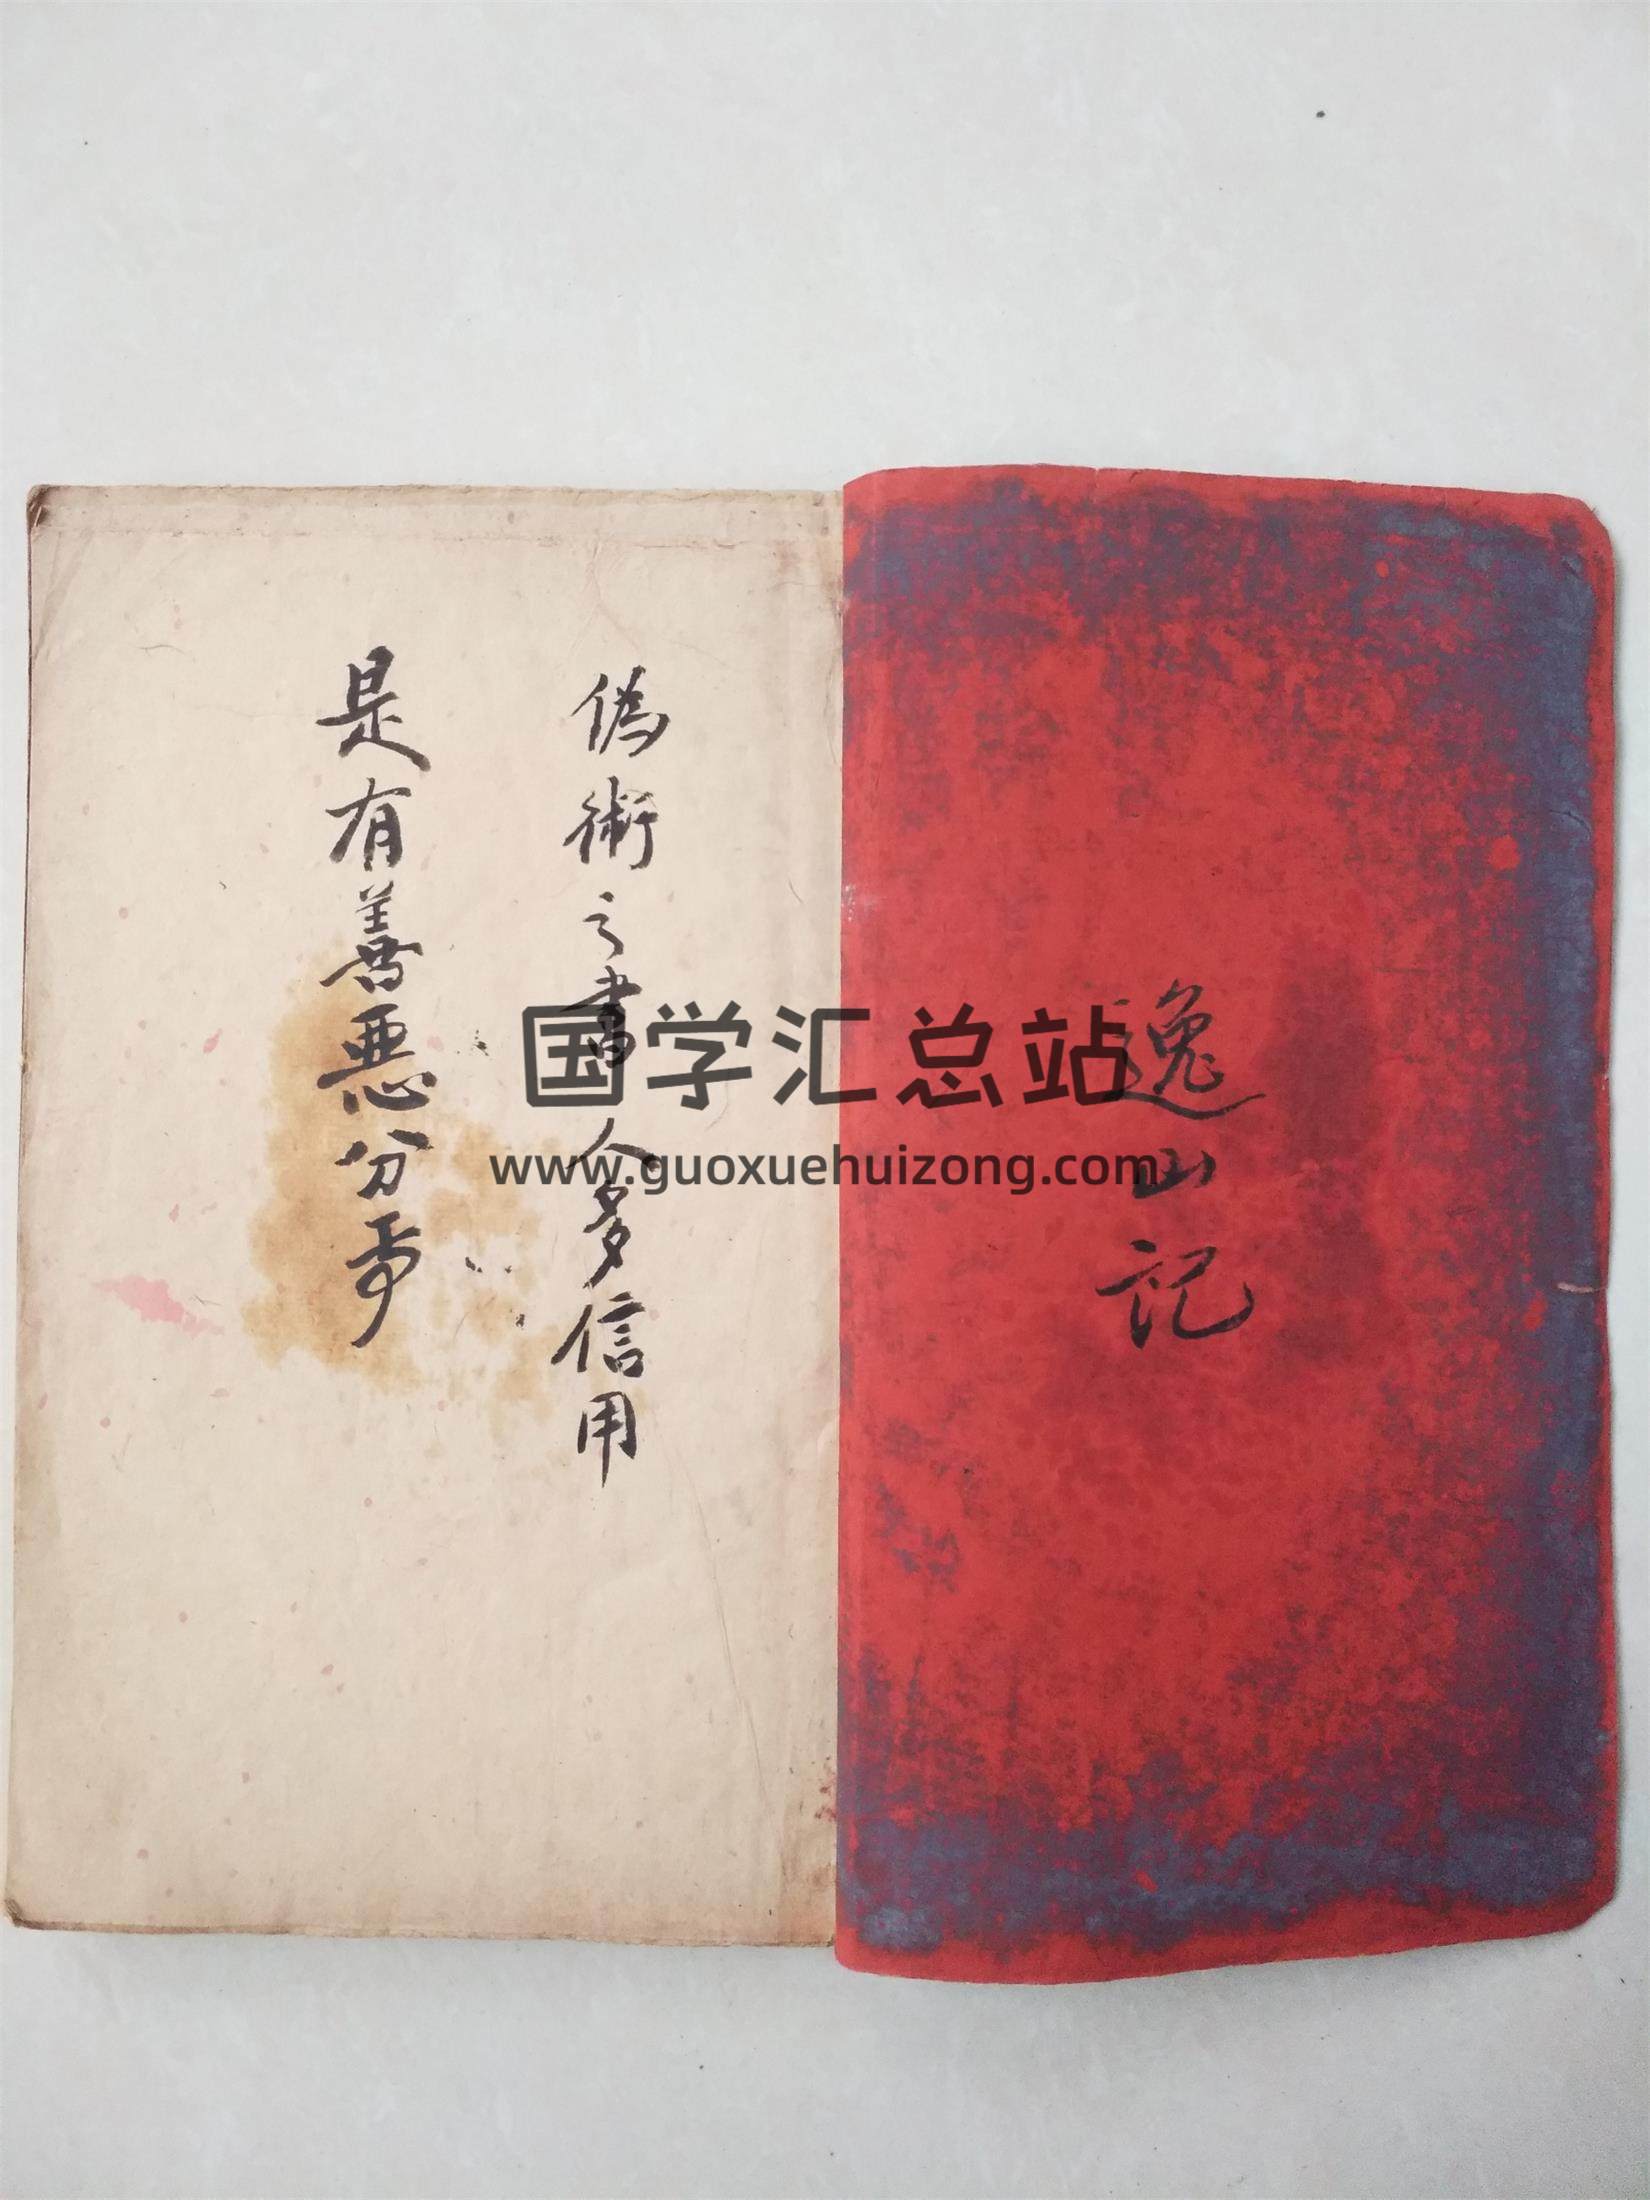 逸山記
偽術之書人多信用
是有善惡分乎
国学汇总站
www.guoxuehuizong.com